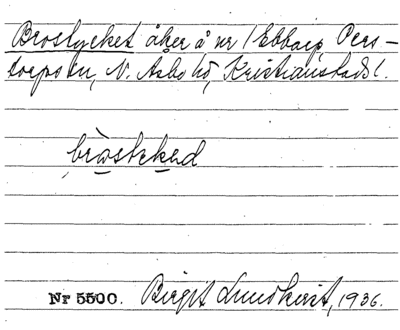 Brostycket åker å nr 1 Ebbarp, Pers-
torps sn, N. Åsbo hd, Kristianstads l.
Nr 5500. Birgit Lundkvist, 1936.